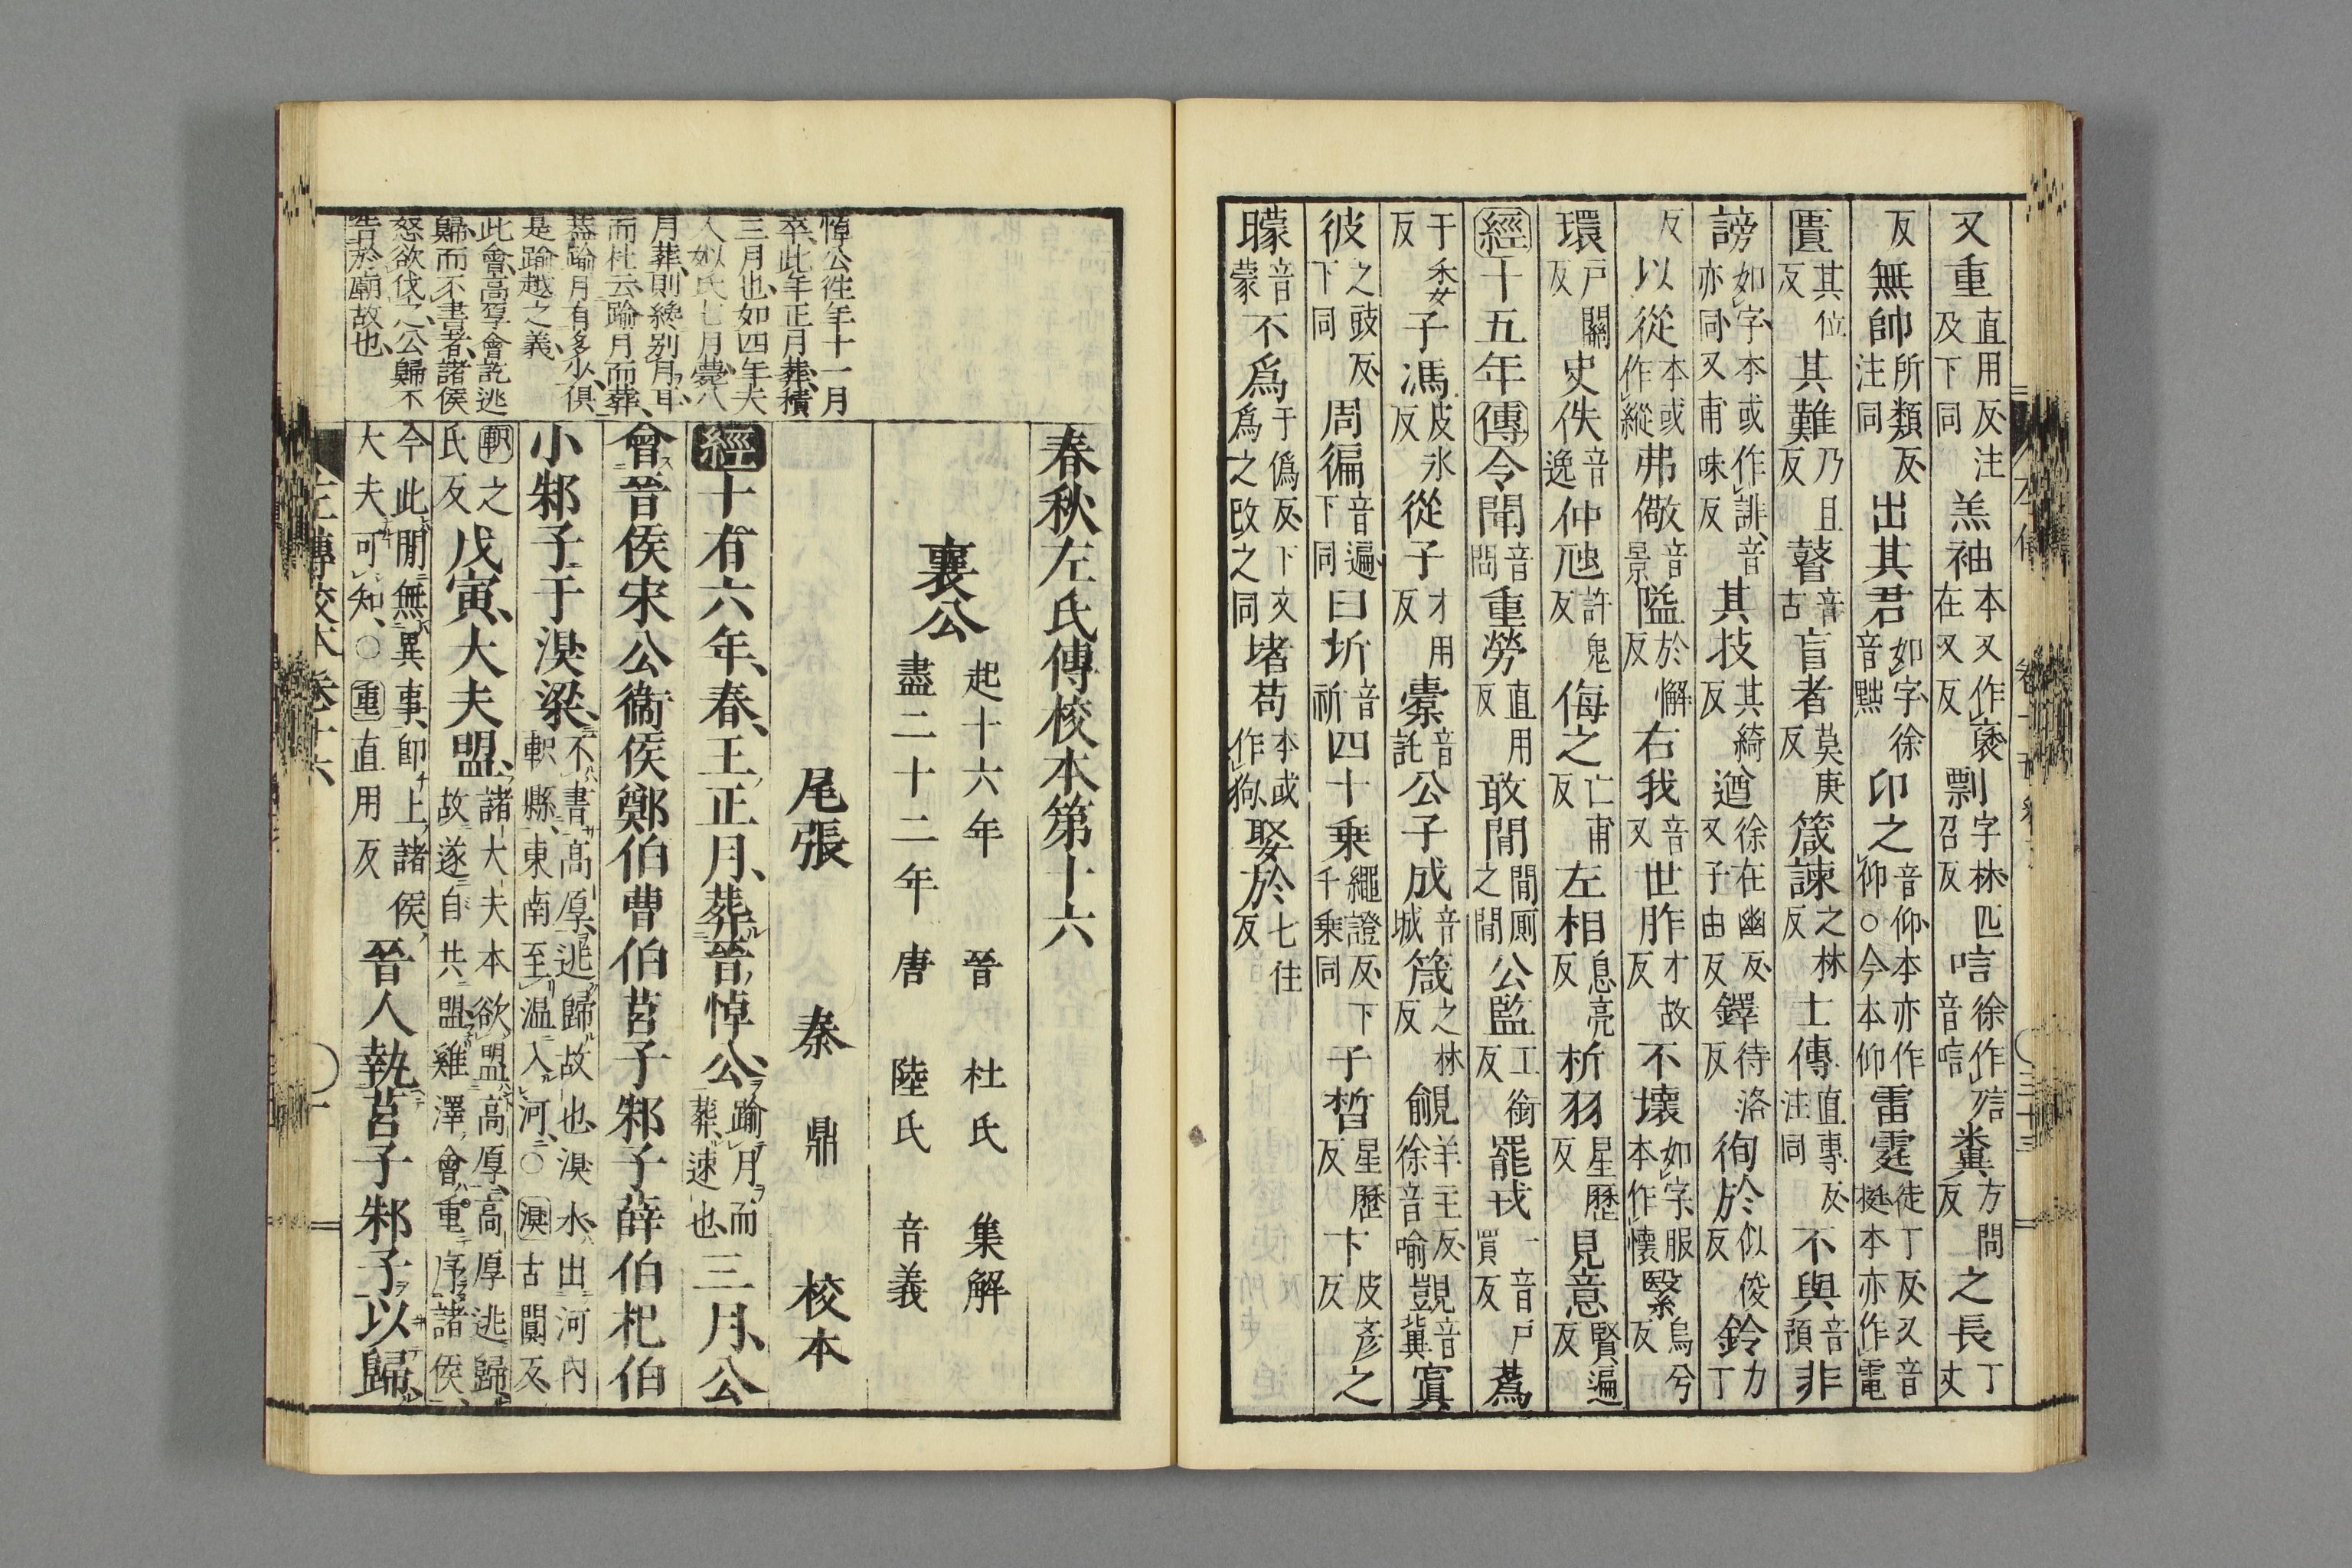 又重直用反注及下同羔袖本又作褎在又反剽字林匹召反唁徐作㖈音唁糞方問反之長丁丈
反無帥所類反注同出其君如字徐音黜卬之音仰本亦作仰○今本仰雷霆徒丁反又音挺本亦作電
匱其位反其難乃旦反瞽音古盲者莫庚反箴諫之林反士傳直專反注同不與音預非
謗如字本或作誹音亦同又甫味反其技其綺反遒徐在幽反又子由反鐸待洛反徇於似俊反鈴力丁
反以從本或作縱弗儆音景隘於懈反右我音又世胙才故反不壞如字服本作懷繄烏兮反
環戶關反史佚音逸仲虺許鬼反侮之亡甫反左相息亮反析羽星歷反見意賢遍反
經十五年傳令聞音問重勞直用反敢閒閒厠之閒公監工銜反罷戎一音戶買反蒍
于委反子馮皮氷反從子才用反橐音託公子成音城箴之林反覦羊主反徐音喻覬音冀寘
彼之豉反下同周徧音遍下同曰圻音祈四十乘繩證反下千乘同子皙星歷反卞皮彥反之
矇音蒙不爲于僞反下文爲之改之同堵苟本或作狗娶於七住反
春秋左氏傳校本第十六
襄公起十六年盡二十二年
晉 杜氏 集解
唐 陸氏 音義
尾張 秦 鼎 校本
經十有六年、春、王正月、葬晉悼公、踰月而葬、速也、三月、公
會晉侯宋公衞侯鄭伯曹伯莒子邾子薛伯杞伯
小邾子于湨梁、不書高厚、逃歸故也、湨水、出河內軹縣、東南至温入河、○湨古闃反、
軹之氏反戊寅、大夫盟、諸大夫本欲盟高厚、高厚逃歸、故遂自共盟雞澤會、重序諸侯、
今此閒無異事、卽上諸侯、大夫可知、○重直用反晉人執莒子邾子以歸、
悼公往年十一月
卒、此年正月葬、積
三月也、如四年夫
人姒氏七月薨八
月葬、則纔別月耳、
而杜云、踰月而葬、
葢踰月有多少、俱
是踰越之義、
此會、高厚會訖逃
歸、而不書者、諸侯
怒欲伐之、公歸不
告於廟故也、
左傳校本 卷十六